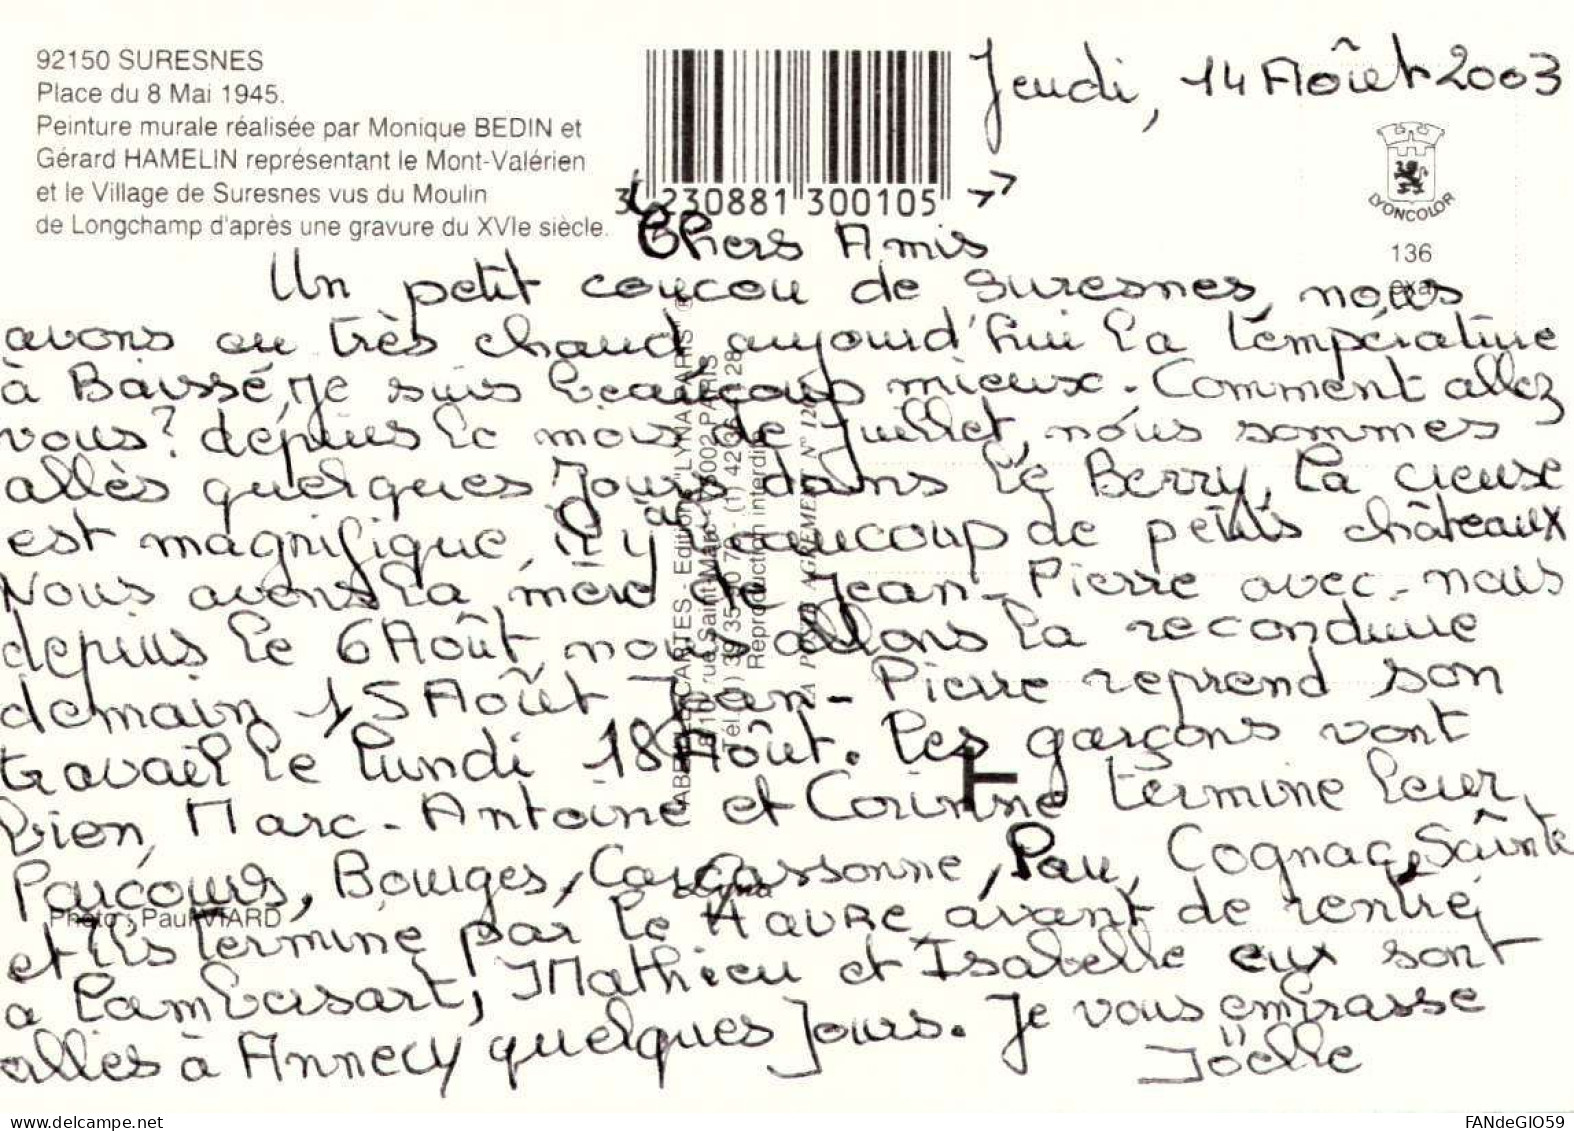 92150 SURESNES
Place du 8 Mai 1945.
Peinture murale réalisée par Monique BEDIN et
Gérard HAMELIN représentant le Mont-Valérien
et le Village de Suresnes vus du Moulin
de Longchamp d'après une gravure du XVIe siècle.
3 230881 300105
Jeudi, 14 Aôut 2003
LYONCOLOR
136
Chers Amis
Un petit coucou de Suresnes, nous
avons eu très chaud aujourd'hui la température
à Baissé, Je suis beaucoup mieux. Comment allez
vous? dépuis le mois de Juillet, nous sommes
allès quelques Jours dans le Berry, la creuse
est magnifique, il y à beaucoup de petits châteaux
Nous avons la mère de Jean-Pierre avec nous
depuis le 6 Août, nous allons la reconduire
demain 15 Aôut Jean-Pierre reprend son
travail le lundi 18 Aôut. les garçons vont
bien, Marc-Antoine et Corinne termine leur
Parcours, Bourges, Carcassonne, Pau, Cognac, Sainte
et ils termine par le HAVRE avant de rentré
a Lambersart, Mathieu et Isabelle eux sont
allès à Annecy quelques Jours. Je vous embrasse
Joëlle
CARTES - Editions "LYNA PARIS" ®
rue Saint-Marc - 75002 PARIS
Reproduction interdite
Lyna
Photo : Paul VIARD
FANdeGIO59